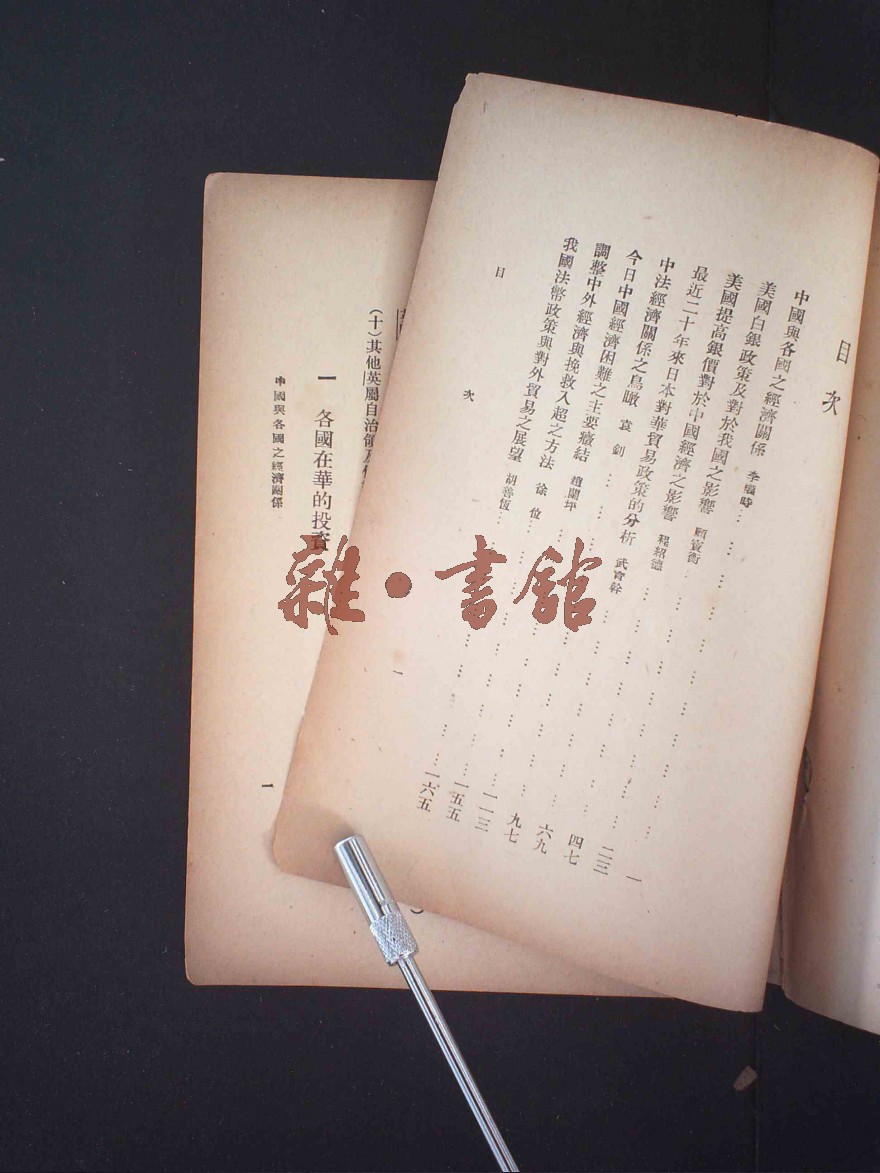 目次
中國與各國之經濟關係 李權時 一
美國白銀政策及對於我國之影響 顧寶衡 二三
美國提高銀價對於中國經濟之影響 程紹德 四七
最近二十年來日本對華貿易政策的分析 武堉幹 六九
中法經濟關係之鳥瞰 袁釗 九七
今日中國經濟困難之主要癥結 趙蘭坪 一一三
調整中外經濟與挽救入超之方法 徐 一五五
我國法幣政策與對外貿易之展望 胡善恆 一六五
目次
一
(十)其他英屬自治領及
一 各國在華的投資
中國與各國之經濟關係
一
雜·書館